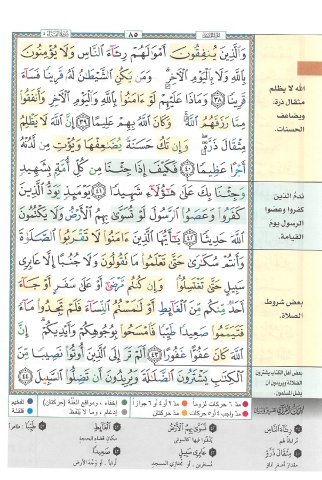 ٨٥
وَالَّذِينَ يُنفِقُونَ أَمْوَٰلَهُمْ رِئَآءَ النَّاسِ وَلَا يُؤْمِنُونَ
بِاللَّهِ وَلَا بِالْيَوْمِ الْآخِرِ وَمَن يَكُنِ الشَّيْطَٰنُ لَهُ قَرِينًا فَسَآءَ
قَرِينًا ٣٨ وَمَاذَا عَلَيْهِمْ لَوْ ءَامَنُوا بِاللَّهِ وَالْيَوْمِ الْآخِرِ وَأَنفَقُوا
مِمَّا رَزَقَهُمُ اللَّهُ وَكَانَ اللَّهُ بِهِمْ عَلِيمًا ٣٩ إِنَّ اللَّهَ لَا يَظْلِمُ
مِثْقَالَ ذَرَّةٍ وَإِن تَكُ حَسَنَةً يُضَٰعِفْهَا وَيُؤْتِ مِن لَّدُنْهُ
أَجْرًا عَظِيمًا ٤٠ فَكَيْفَ إِذَا جِئْنَا مِن كُلِّ أُمَّةٍ بِشَهِيدٍ
وَجِئْنَا بِكَ عَلَىٰ هَٰٓؤُلَآءِ شَهِيدًا ٤١ يَوْمَئِذٍ يَوَدُّ الَّذِينَ
كَفَرُوا وَعَصَوُا الرَّسُولَ لَوْ تُسَوَّىٰ بِهِمُ الْأَرْضُ وَلَا يَكْتُمُونَ
اللَّهَ حَدِيثًا ٤٢ يَٰٓأَيُّهَا الَّذِينَ ءَامَنُوا لَا تَقْرَبُوا الصَّلَوٰةَ
وَأَنتُمْ سُكَٰرَىٰ حَتَّىٰ تَعْلَمُوا مَا تَقُولُونَ وَلَا جُنُبًا إِلَّا عَابِرِى
سَبِيلٍ حَتَّىٰ تَغْتَسِلُوا وَإِن كُنتُم مَّرْضَىٰٓ أَوْ عَلَىٰ سَفَرٍ أَوْ جَآءَ
أَحَدٌ مِّنكُم مِّنَ الْغَآئِطِ أَوْ لَٰمَسْتُمُ النِّسَآءَ فَلَمْ تَجِدُوا مَآءً
فَتَيَمَّمُوا صَعِيدًا طَيِّبًا فَامْسَحُوا بِوُجُوهِكُمْ وَأَيْدِيكُمْ إِنَّ
اللَّهَ كَانَ عَفُوًّا غَفُورًا ٤٣ أَلَمْ تَرَ إِلَى الَّذِينَ أُوتُوا نَصِيبًا مِّنَ
الْكِتَٰبِ يَشْتَرُونَ الضَّلَٰلَةَ وَيُرِيدُونَ أَن تَضِلُّوا السَّبِيلَ ٤٤
الله لا يظلم
مثقال ذرة،
ويضاعف
الحسنات.
ندم الذين
كفروا وعصوا
الرسول يوم
القيامة.
بعض شروط
الصلاة.
بعض أهل الكتاب يشترون
الضلالة ويريدون أن
يضل المسلمون.
مد ٦ حركات لزوماً
مد ٢ أو ٤ أو ٦ جوازاً
إخفاء، ومواقع الغنة (حركتان)
تفخيم
مد واجب ٤ أو ٥ حركات
مد حركتان
إدغام، وما لا يلفظ
قلقلة
رِئَاءَ النَّاسِ
مِثْقَالَ ذَرَّةٍ
عَابِرِي سَبِيلٍ
الْغَائِطِ
صَعِيدًا